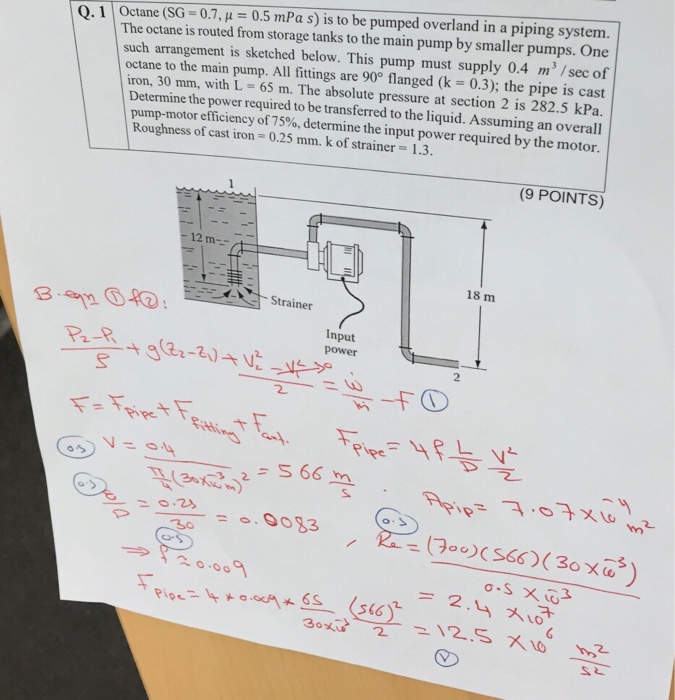 Q. 1
Octane (SG = 0.7, μ = 0.5 mPa s) is to be pumped overland in a piping system.
The octane is routed from storage tanks to the main pump by smaller pumps. One
such arrangement is sketched below. This pump must supply 0.4 m³ /sec of
octane to the main pump. All fittings are 90° flanged (k = 0.3); the pipe is cast
iron, 30 mm, with L = 65 m. The absolute pressure at section 2 is 282.5 kPa.
Determine the power required to be transferred to the liquid. Assuming an overall
pump-motor efficiency of 75%, determine the input power required by the motor.
Roughness of cast iron = 0.25 mm. k of strainer = 1.3.
(9 POINTS)
1
12 m
18 m
Strainer
Input
power
2
B. eqn ① & ②:
P₂-P₁/ρ + g(z₂-z₁) + V₂²-V₁²→0/2 = ẇ/ṁ - F ①
F = Fpipe + Ffitting + Fent.
Fpipe = 4f L/D V²/2
0.5
V = 0.4/(π/4 (30×10⁻³m)²) = 566 m/s
Apip = 7.07×10⁻⁴ m²
0.5
e/D = 0.25/30 = 0.0083
,
0.5
Re = (700)(566)(30×10⁻³)/0.5×10⁻³
= 2.4 ×10⁷
0.5
⇒ f ≈ 0.009
Fpipe = 4 * 0.009 * 65/30×10⁻³ (566)²/2 = 12.5 ×10⁶ m²/s²